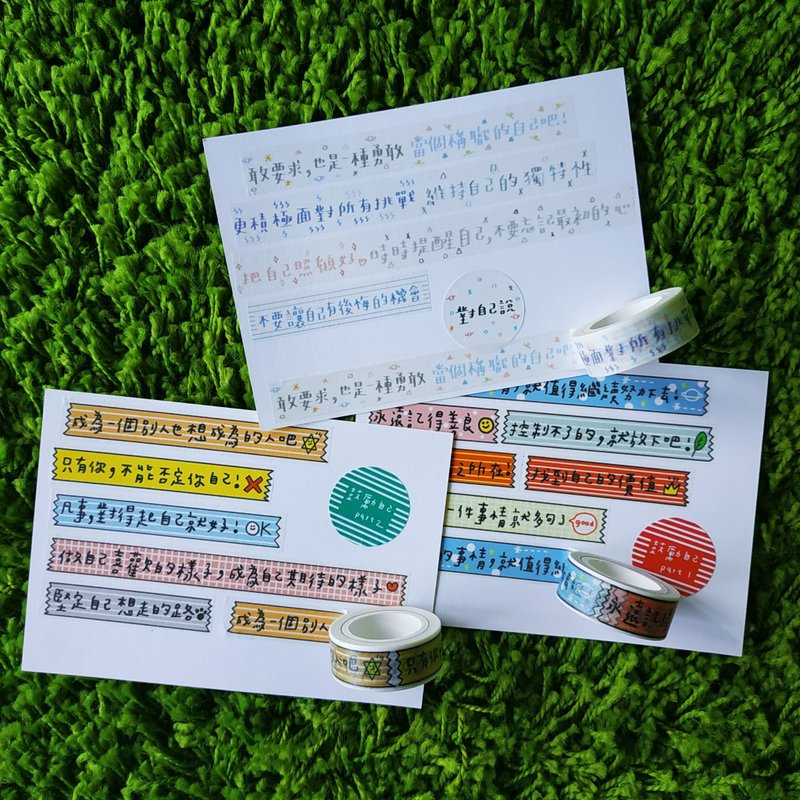 敢要求，也是一種勇敢 當個稱職的自己吧！
更積極面對所有挑戰 維持自己的獨特性
把自己照顧好 時時提醒自己，不要忘記最初的心
不要讓自己有後悔的機會
對自己說
敢要求，也是一種勇敢 當個稱職的自己吧
極面對所有挑
成為一個別人也想成為的人吧
只有你，不能否定你自己！
凡事，對得起自己就好！ OK
做自己喜歡的樣子，成為自己期待的樣子
堅定自己想走的路
成為一個別人
鼓勵自己
part 2
人吧 只有你
，就值得繼續努力下去！
永遠記得善良
控制不了的，就放下吧！
之所在！
找到自己的價值
一件事情就夠了 good
的事情，就值得繼
鼓勵自己
part 1
永遠記